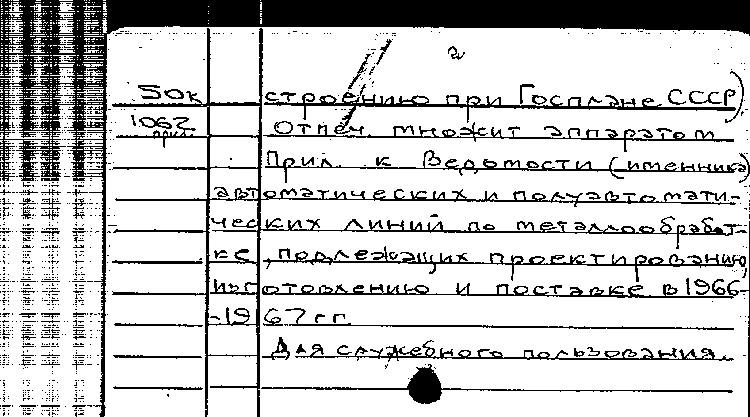 2
50к строению при Госплане СССР).
1062 Отпеч. множит аппаратом
прил. Прил. к Ведомости (именника)
автоматических и полуавтомати-
ческих линий по металлообработ-
ке, подлежащих проектированию,
изготовлению и поставке в 1966-
-1967 гг.
Для служебного пользования.